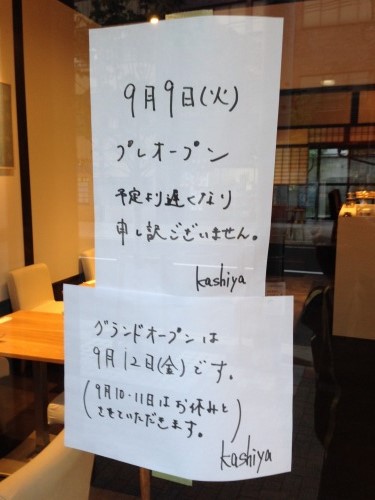 9月9日(火)
プレオープン
予定より遅くなり
申し訳ございません。
kashiya
グランドオープンは
9月12日(金)です。
(9月10・11日はお休みと
させていただきます。)
kashiya